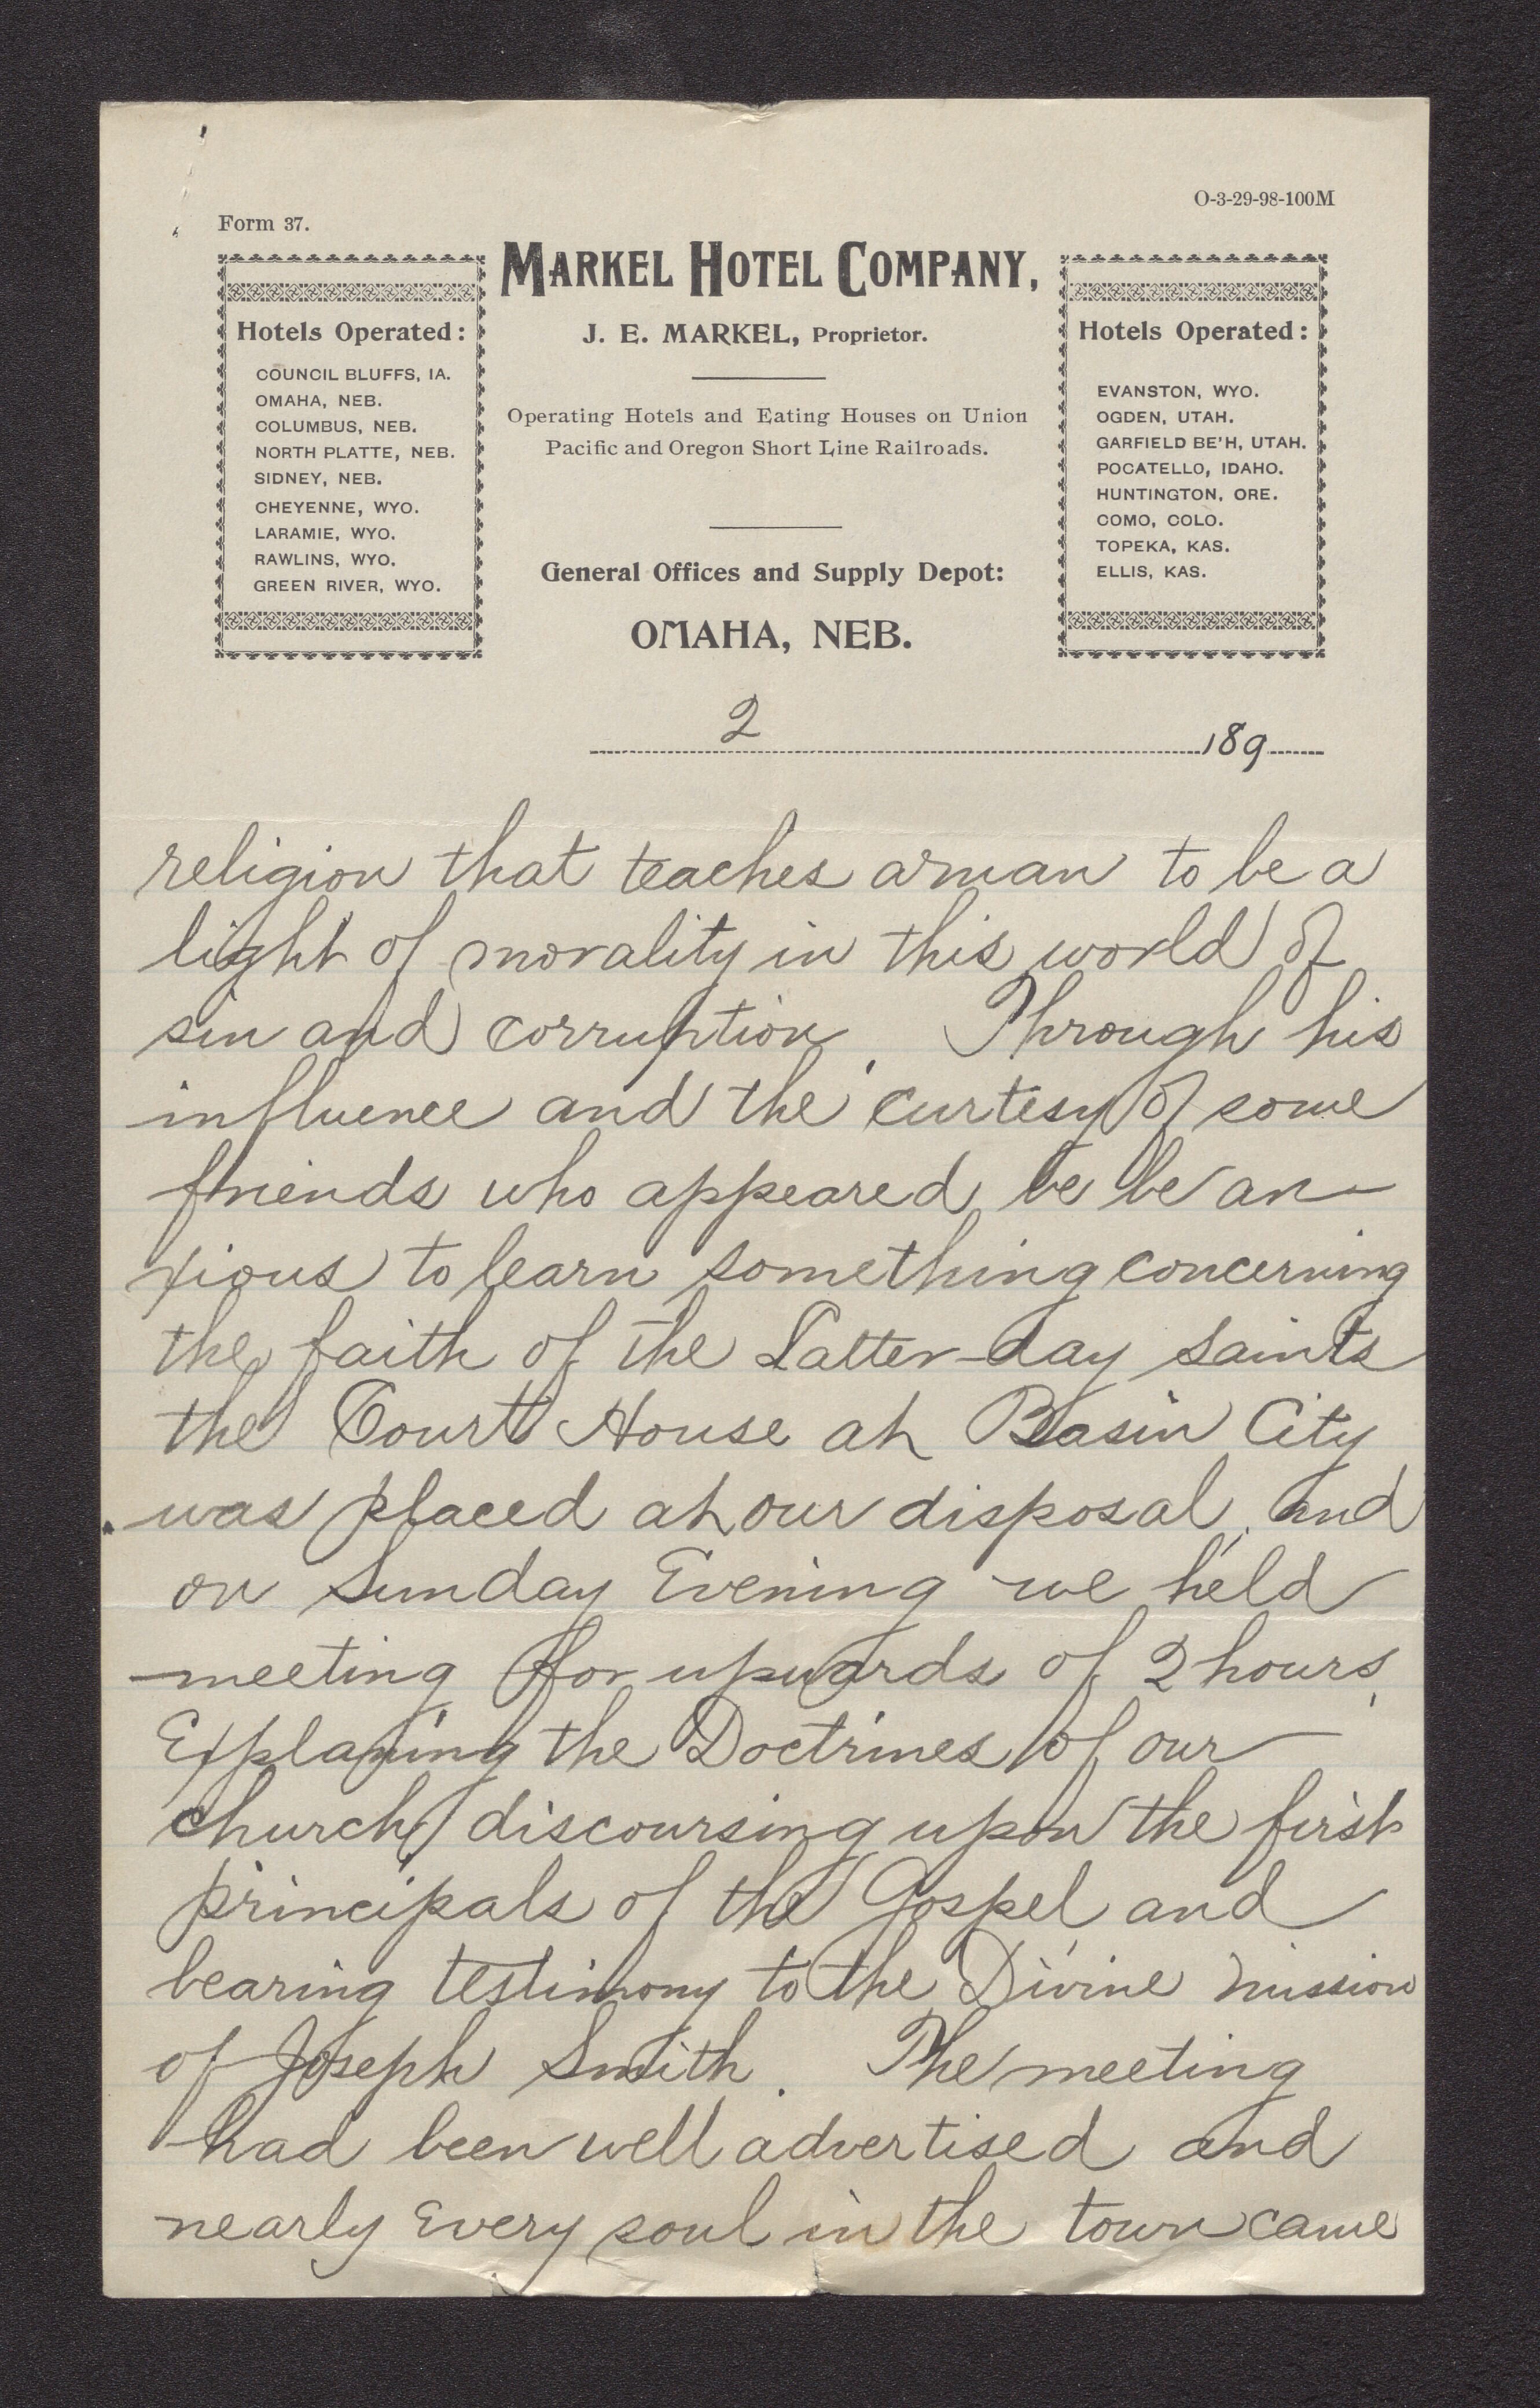 O-3-29-98-100M
Form 37.
MARKEL HOTEL COMPANY,
J. E. MARKEL, Proprietor.
Operating Hotels and Eating Houses on Union
Pacific and Oregon Short Line Railroads.
General Offices and Supply Depot:
OMAHA, NEB.
Hotels Operated:
COUNCIL BLUFFS, IA.
OMAHA, NEB.
COLUMBUS, NEB.
NORTH PLATTE, NEB.
SIDNEY, NEB.
CHEYENNE, WYO.
LARAMIE, WYO.
RAWLINS, WYO.
GREEN RIVER, WYO.
Hotels Operated:
EVANSTON, WYO.
OGDEN, UTAH.
GARFIELD BE'H, UTAH.
POCATELLO, IDAHO.
HUNTINGTON, ORE.
COMO, COLO.
TOPEKA, KAS.
ELLIS, KAS.
2 189
religion that teaches a man to be a
light of morality in this world of
sin and corruption. Through his
influence and the curtesy of some
friends who appeared be be an-
xious to learn something concerning
the faith of the Latter-day saints
the Court House at Basin City
was placed at our disposal, and
on Sunday Evening we held
meeting for upwards of 2 hours,
Explaning the Doctrines of our
church, discoursing upon the first
principals of the Gospel and
bearing testimony to the Divine mission
of Joseph Smith. The meeting
had been well advertised and
nearly every soul in the town came